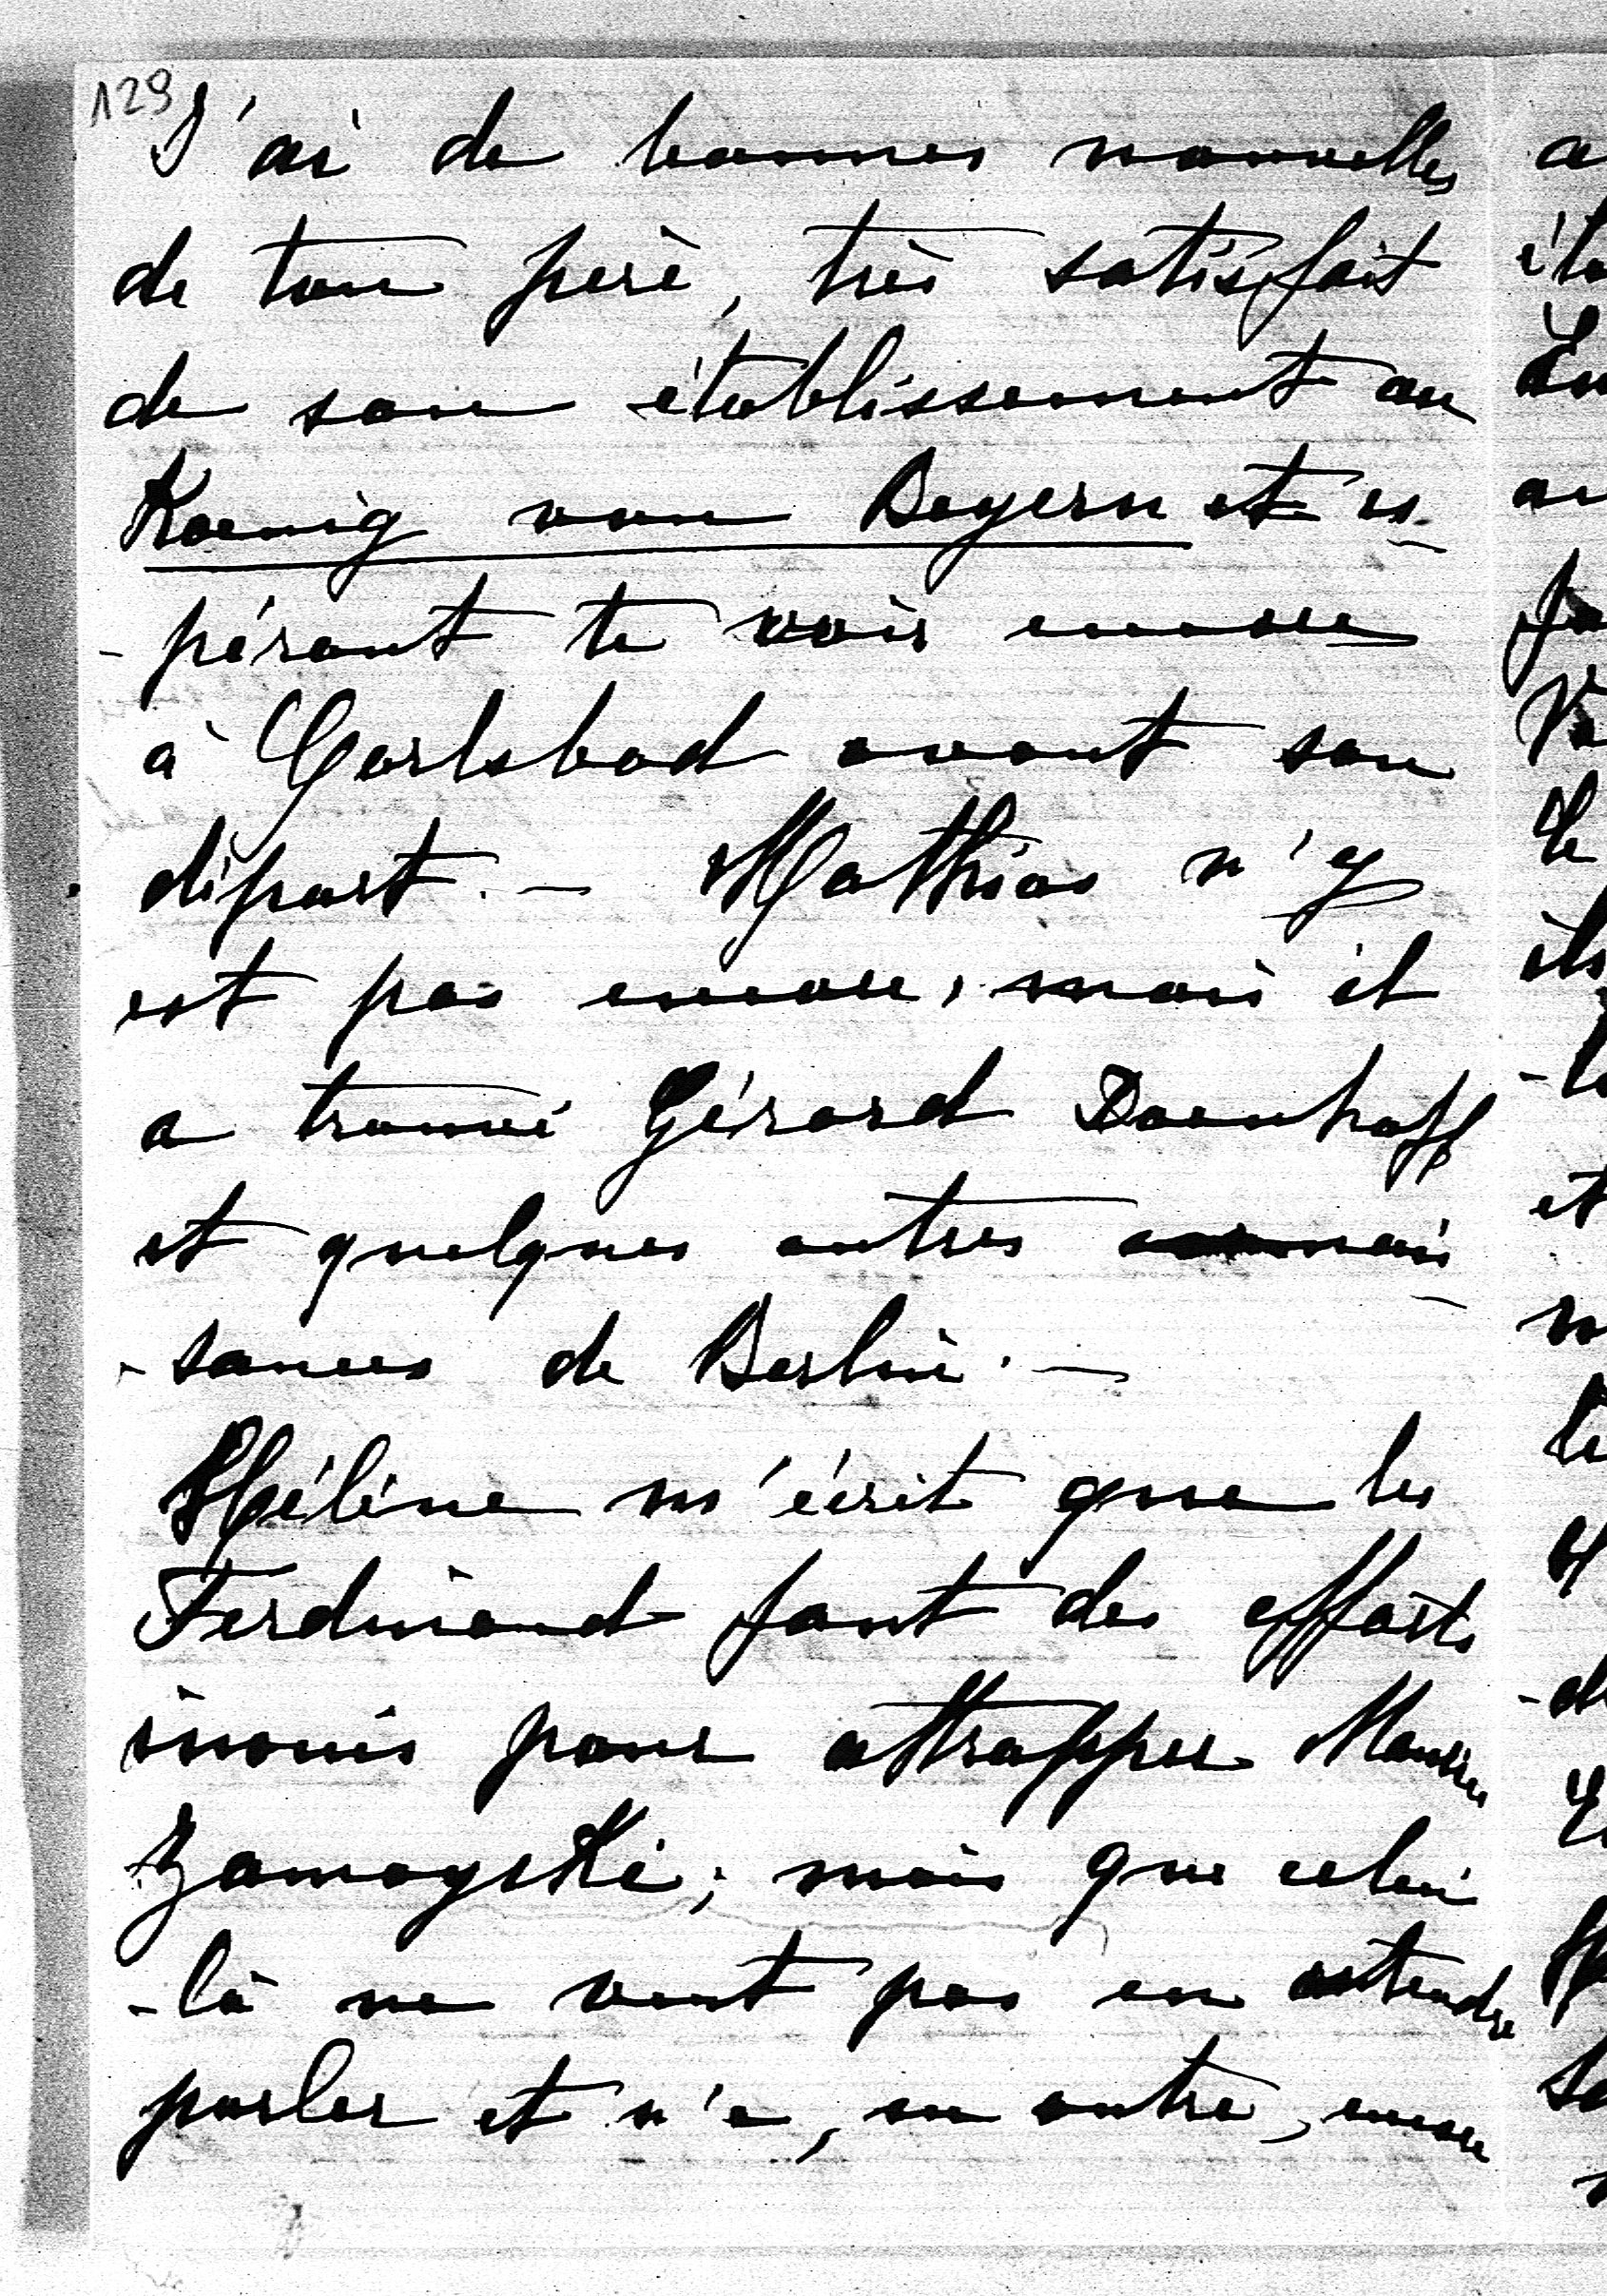 129
J'ai de bonnes nouvelles
de ton père, très satisfait
de son établissement au
Koenig von Bayern et es-
-pérant te voir encore
à Carlsbad avant son
départ. — Mathias n'y
est pas encore, mais il
a trouvé Gérard Doenhoff
et quelques autres connais-
-sances de Berlin. —
Hélène m'écrit que les
Ferdinand font des efforts
inouis pour attrapper Maurice
Zamoyski; mais que celui
-là ne veut pas en entendre
parler et n'a, en outre, encore